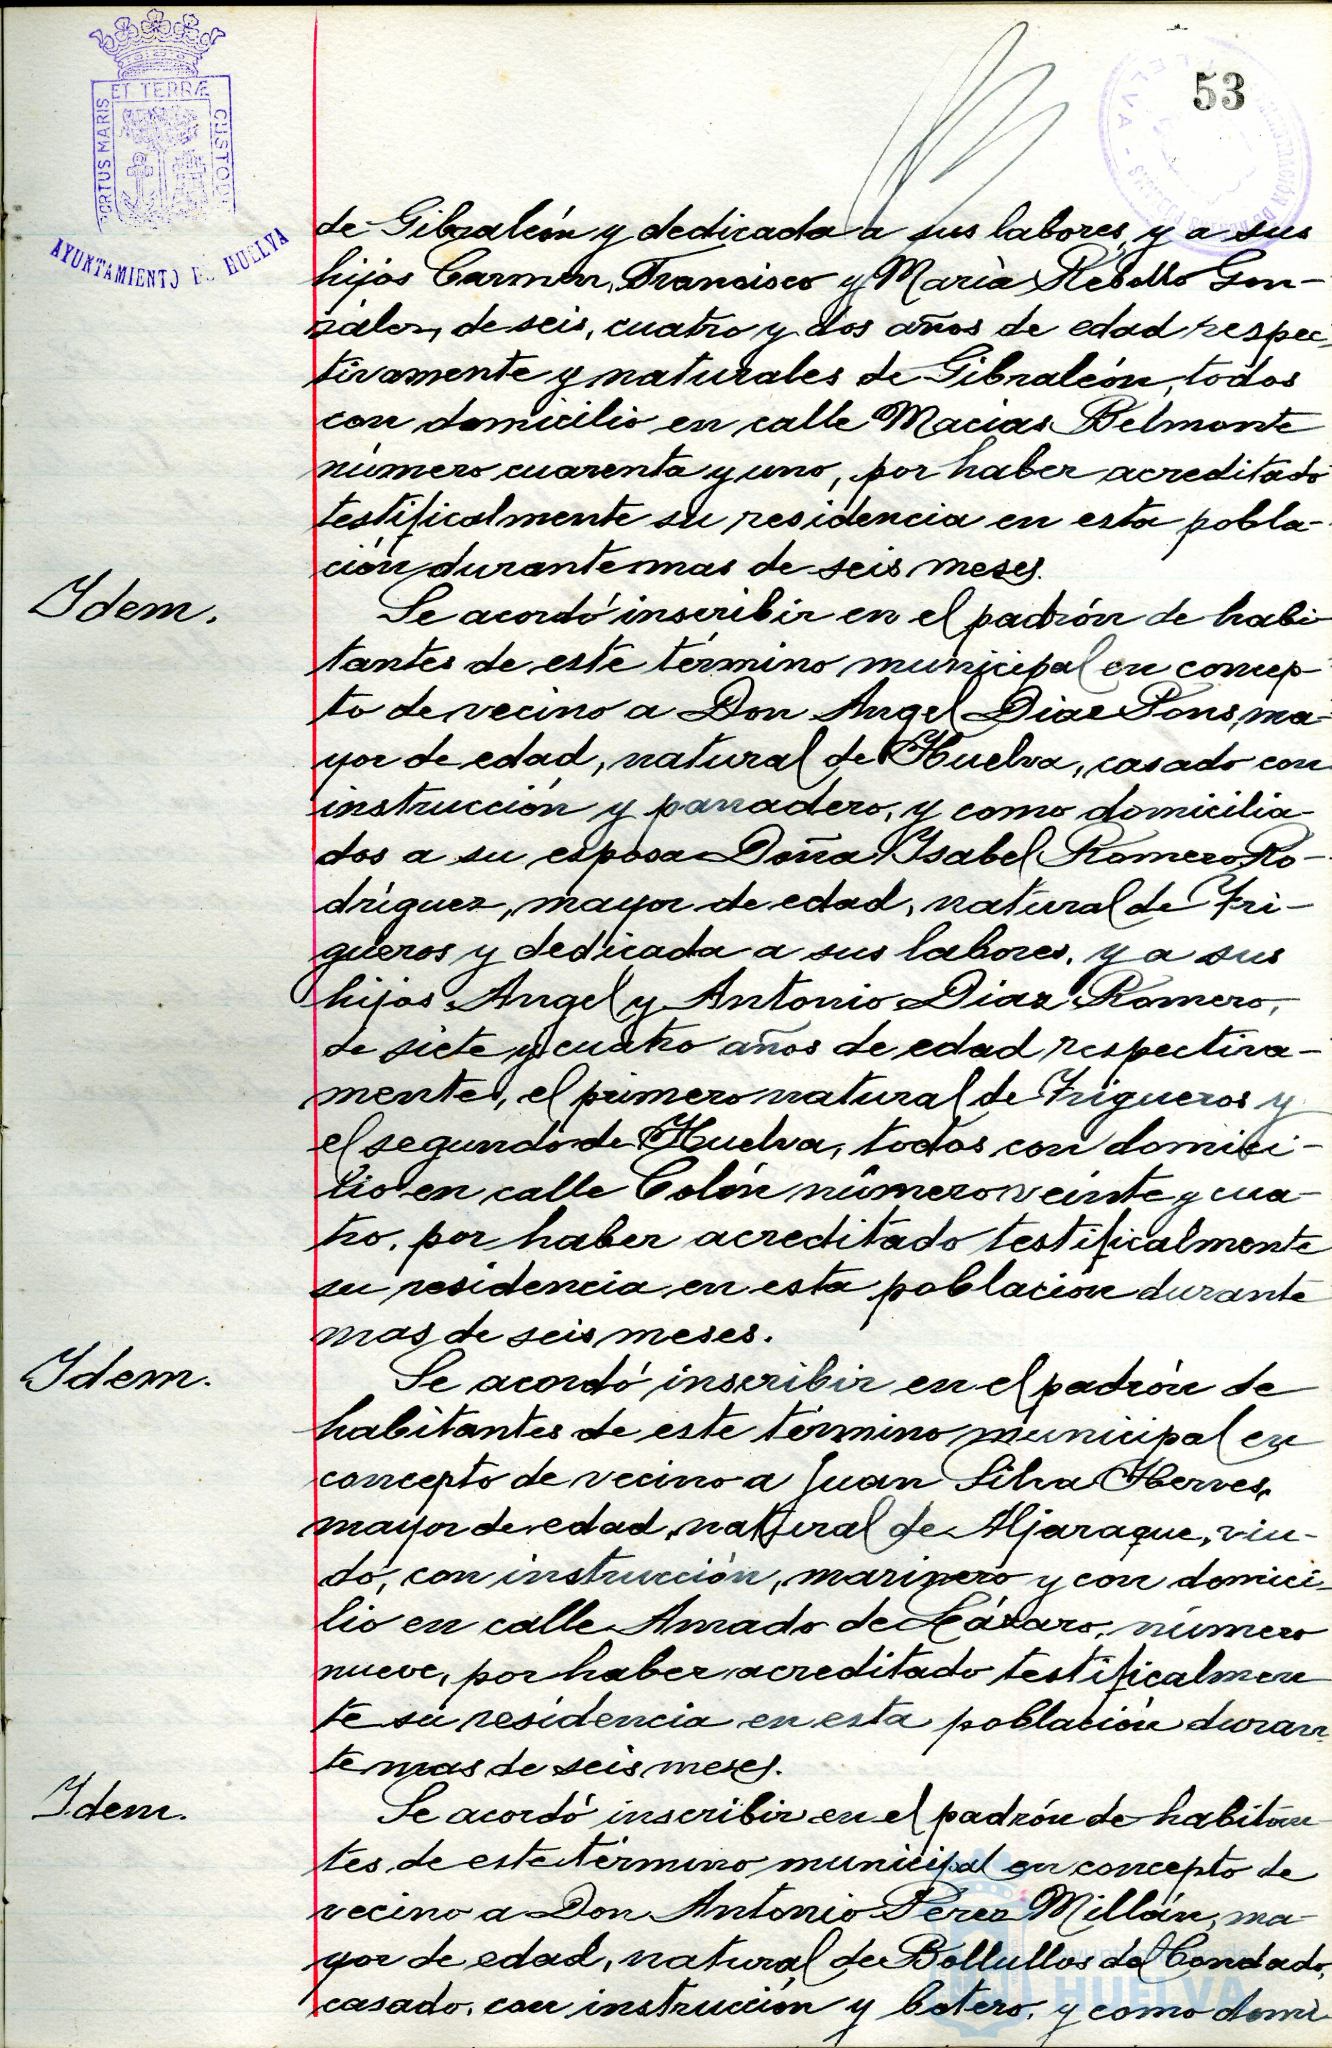 PORTUS MARIS
ET TERRÆ
CUSTOD
AYUNTAMIENTO DE HUELVA
53
de Gibraleón y dedicada a sus labores, y a sus
hijos Carmen, Francisco y Maria Rebollo Gon-
zalez, de seis, cuatro y dos años de edad respec-
tivamente y naturales de Gibraleón, todos
con domicilio en calle Macias Belmonte
número cuarenta y uno, por haber acreditado
testificalmente su residencia en esta pobla-
ción durante mas de seis meses.
Idem.
Se acordó inscribir en el padrón de habi-
tantes de este término municipal en concep-
to de vecino a Don Angel Diaz Pons, ma-
yor de edad, natural de Huelva, casado con
instrucción y panadero, y como domicilia-
dos a su esposa Doña Isabel Romero Ro-
driguez, mayor de edad, natural de Tri-
gueros y dedicada a sus labores, y a sus
hijos Angel y Antonio Diaz Romero,
de siete y cuatro años de edad respectiva-
mente, el primero natural de Trigueros y
el segundo de Huelva, todos con domici-
lio en calle Colón número veinte y cua-
tro, por haber acreditado testificalmente
su residencia en esta poblacion durante
mas de seis meses.
Idem.
Se acordó inscribir en el padrón de
habitantes de este término municipal en
concepto de vecino a Juan Silva Herves,
mayor de edad, natural de Aljaraque, viu-
do, con instrucción, marinero y con domici-
lio en calle Amado de Lázaro, número
nueve, por haber acreditado testificalmen
te su residencia en esta población duran-
te mas de seis meses.
Idem.
Se acordó inscribir en el padrón de habitan
tes de este término municipal en concepto de
vecino a Don Antonio Pérez Millán, ma-
yor de edad, natural de Bollullos del Condado,
casado, con instrucción y botero, y como domi-
Ayuntamiento de
HUELVA